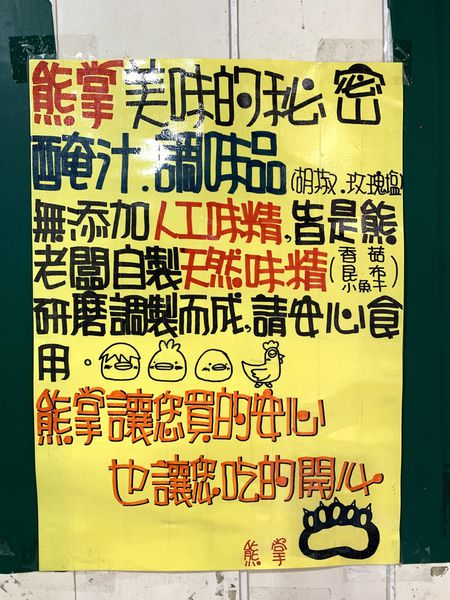 熊掌美味的秘密
醃汁.調味品(胡椒.玫瑰塩)
無添加人工味精,皆是熊
老闆自製天然味精(香菇昆布小魚干)
研磨調製而成,請安心食
用.
熊掌讓您買的安心
也讓您吃的開心
熊掌